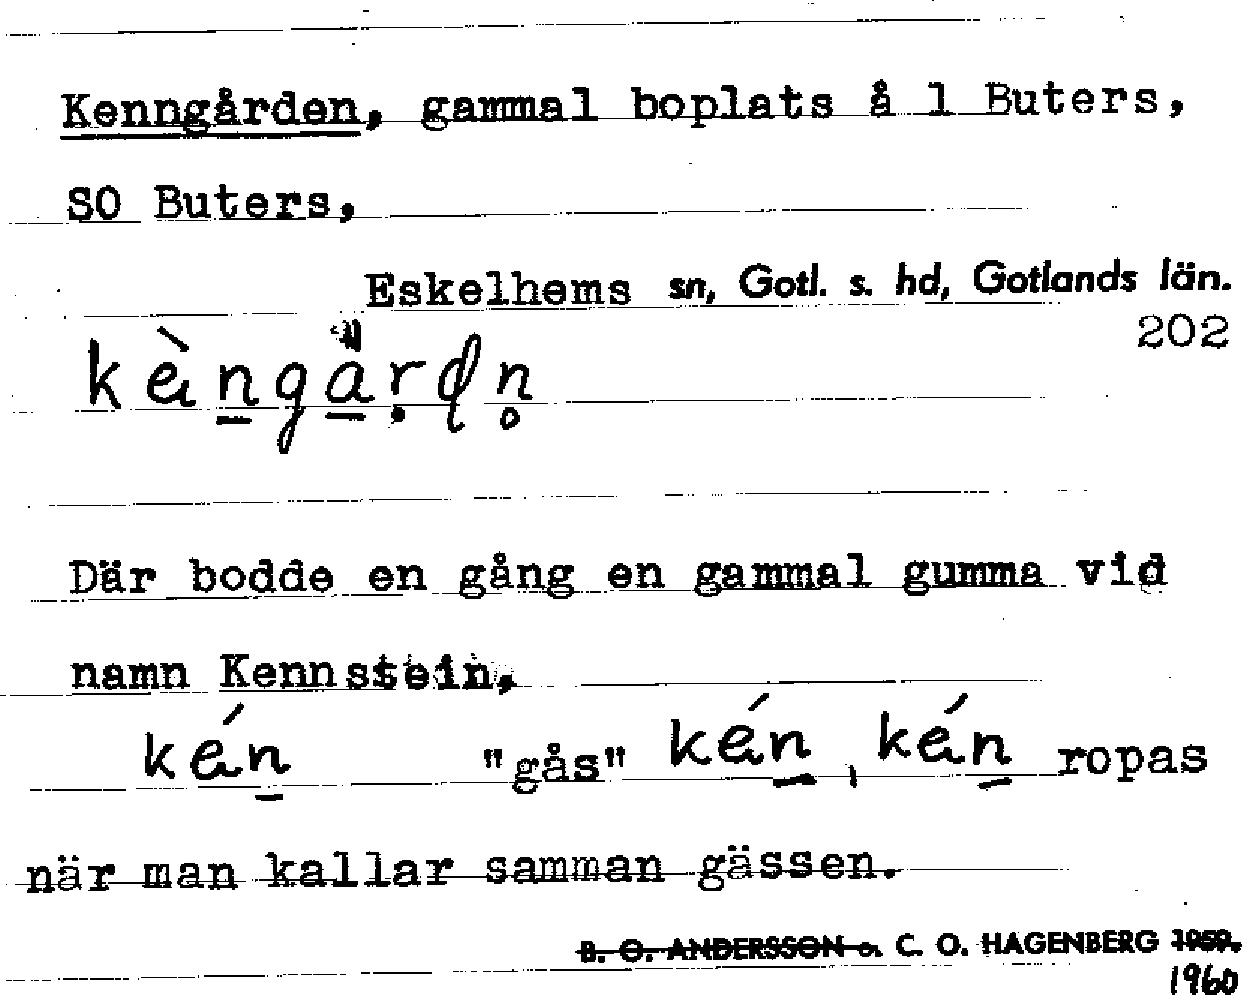 Kenngården, gammal boplats å 1 Buters,
SO Buters,
Eskelhems sn, Gotl. s. hd, Gotlands län.
202
kèn̠gå̠rdn̥
Där bodde en gång en gammal gumma vid
namn Kennstein.
kén̠ "gås" kén̠, kén̠ ropas
när man kallar samman gässen.
B. O. ANDERSSON o. C. O. HAGENBERG 1959.
1960